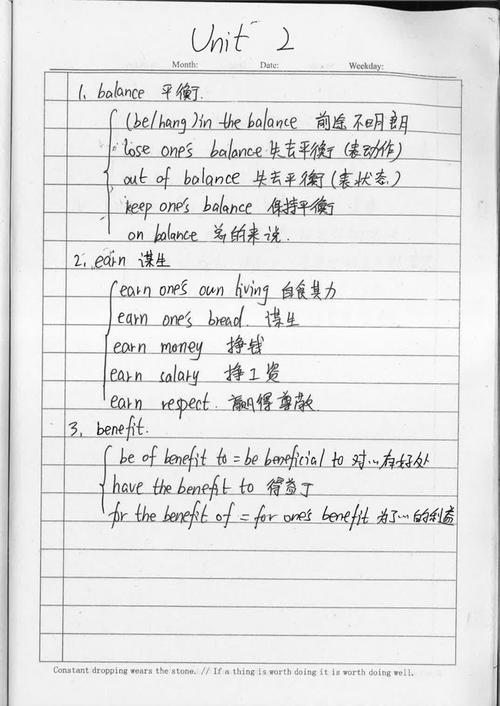 Unit 2
Month: Date: Weekday:
1. balance 平衡.
(be/hang) in the balance 前途不明朗
lose one's balance 失去平衡(表动作)
out of balance 失去平衡(表状态)
keep one's balance 保持平衡
on balance 总的来说.
2. earn 谋生
earn one's own living 自食其力
earn one's bread. 谋生
earn money 挣钱
earn salary 挣工资
earn respect. 赢得尊敬
3. benefit.
be of benefit to = be beneficial to 对…有好处
have the benefit to 得益于
for the benefit of = for one's benefit 为了…的利益
Constant dropping wears the stone. // If a thing is worth doing it is worth doing well.